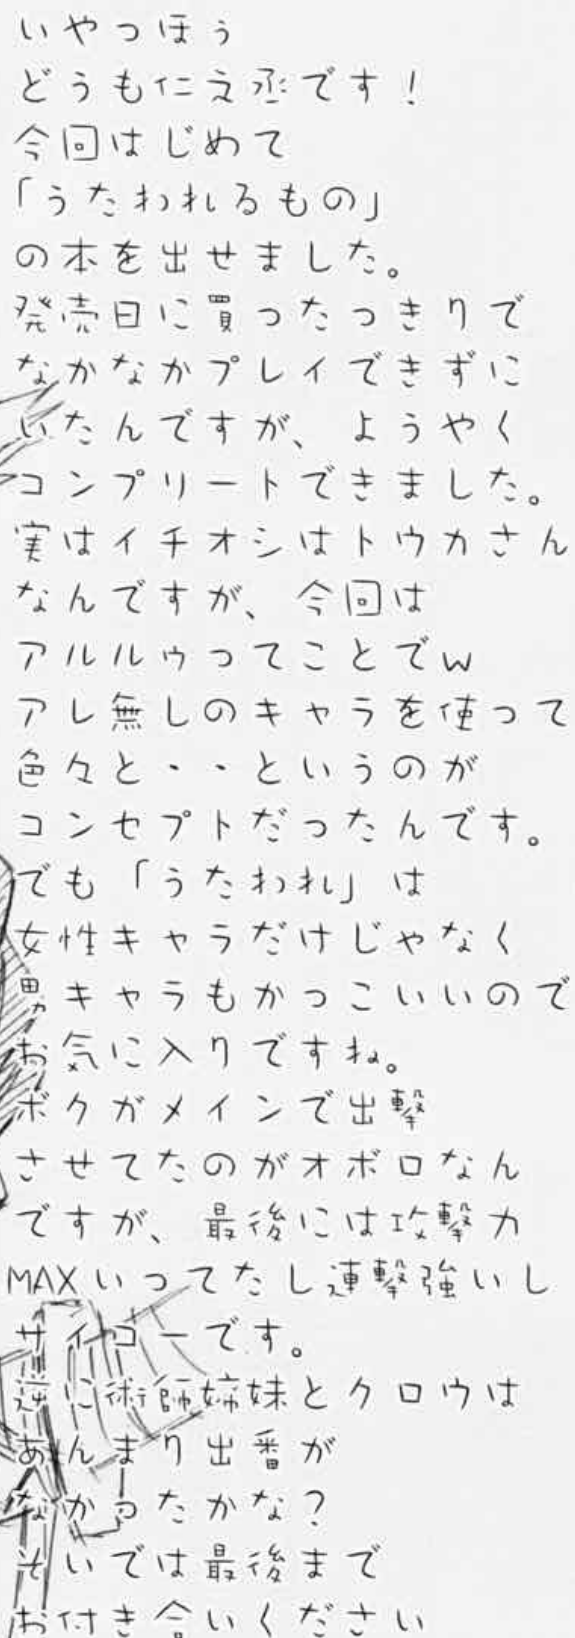 いやつほぅ
どうも仁え丞です！
今回はじめて
「うたわれるもの」
の本を出せました。
発売日に買ったっきりで
なかなかプレイできずに
いたんですが、ようやく
コンプリートできました。
実はイチオシはトウカさん
なんですが、今回は
アルルゥってことでw
アレ無しのキャラを使って
色々と・・というのが
コンセプトだったんです。
でも「うたわれ」は
女性キャラだけじゃなく
男キャラもかっこいいので
お気に入りですね。
ボクがメインで出撃
させてたのがオボロなん
ですが、最後には攻撃力
MAXいってたし連撃強いし
サイコーです。
逆に術師姉妹とクロウは
あんまり出番が
なかったかな？
そいでは最後まで
お付き合いください